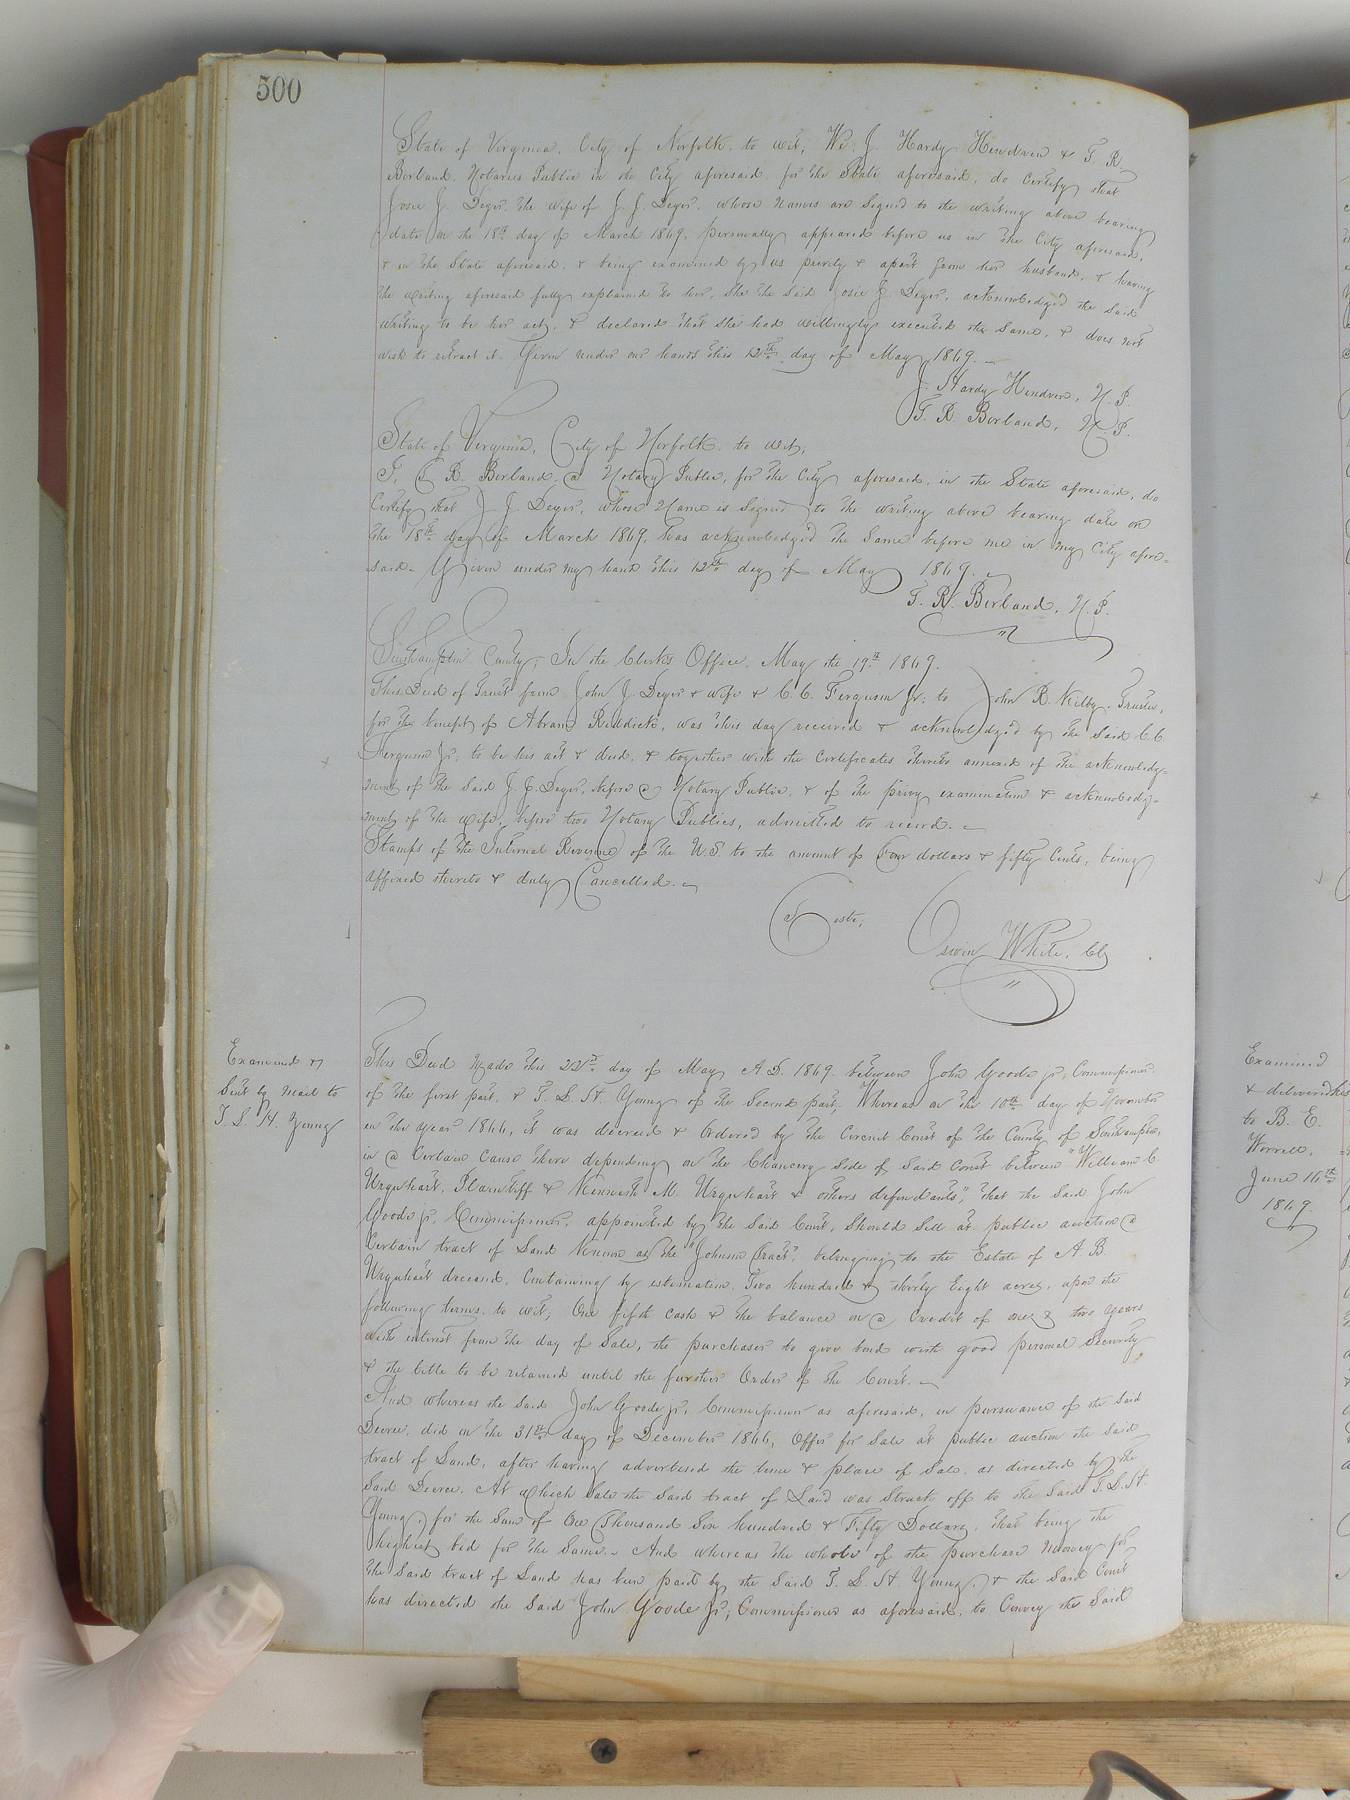 500
State of Virginia, City of Norfolk, to wit; We J. Hardy Hendren & T. R.
Borland, Notaries Public in the City aforesaid, for the State aforesaid, do Certify that
Josie J. Deyer, the wife of J. J. Deyer, whose names are Signed to the writing above bearing
date on the 18th day of March 1869, personally appeared before us in the City aforesaid,
& in the State aforesaid, & being examined by us privily & apart from her husband, & having
the writing aforesaid fully explained to her, She the Said Josie J. Deyer, acknowledged the said
writing to be her act, & declared that She had willingly executed the Same, & does not
wish to retract it. Given under our hands this 12th day of May 1869.
J. Hardy Hendren, N. P.
T. R. Borland, N. P.
State of Virginia, City of Norfolk, to wit,
I, T. R. Borland, a Notary Public, for the City aforesaid, in the State aforesaid, do
Certify that J. J. Deyer, whose Name is Signed to the writing above bearing date on
the 18th day of March 1869, has acknowledged the Same before me in my City afore-
said. Given under my hand this 12th day of May 1869.
T. R. Borland, N. P.
Southampton County; In the Clerk's Office, May the 19th 1869.
This Deed of Trust from John J. Deyer & wife & C. C. Ferguson Jr: to John R. Kilby, Trustee,
for the benefit of Abram Riddick, was this day received & acknowledged by the Said C. C.
Ferguson Jr, to be his act & deed, & together with the Certificates thereto annexed of the acknowledg-
ment of the Said J. J. Deyer, before a Notary Public, & of the privy examination & acknowledg-
ment of the wife, before two Notary Publics, admitted to record.
Stamps of the Internal Revenue of the U.S. to the amount of Four dollars & fifty Cents, being
affixed thereto & duly Cancelled.
Teste,
Oswin White, Clk
Examined &
Sent by Mail to
T. S. H. Young
This Deed Made this 22nd day of May A.D. 1869 between John Goode jr, Commissioner
of the first part, & T. S. H. Young of the Second part, Whereas on the 10th day of November
in the year 1866, it was decreed & Ordered by the Circuit Court of the County of Southampton,
in a Certain Cause there depending on the Chancery Side of Said Court between "William C.
Urquhart, Plaintiff & Kenneth M. Urquhart & others defendants", that the Said John
Goode jr, Commissioner, appointed by the Said Court, Should Sell at public auction a
Certain tract of Land known as the "Johnson Tract", belonging to the Estate of A B
Urquhart deceased, Containing by estimation, Two hundred & thirty Eight acres, upon the
following terms, to wit; One fifth Cash & the balance on a Credit of one & two years
with interest from the day of Sale, the purchaser to give bond with good personal Security
& the title to be retained until the further Order of the Court.
And whereas the Said John Goode jr, Commissioner as aforesaid, in pursuance of the Said
Decree, did on the 31st day of December 1866, Offer for Sale at public auction the Said
tract of Land, after having advertised the time & place of Sale, as directed by the
Said Decree. At which Sale the Said tract of Land was Struck off to the Said T. S. H.
Young, for the Sum of One Thousand Six hundred & Fifty Dollars, that being the
highest bid for the Same. And whereas the whole of the purchase Money for
the Said tract of Land has been paid by the Said T. S. H. Young, & the Said Court
has directed the Said John Goode Jr; Commissioner as aforesaid, to Convey the Said
Examined
& delivered
to B. E.
Worrell,
June 16th
1869.